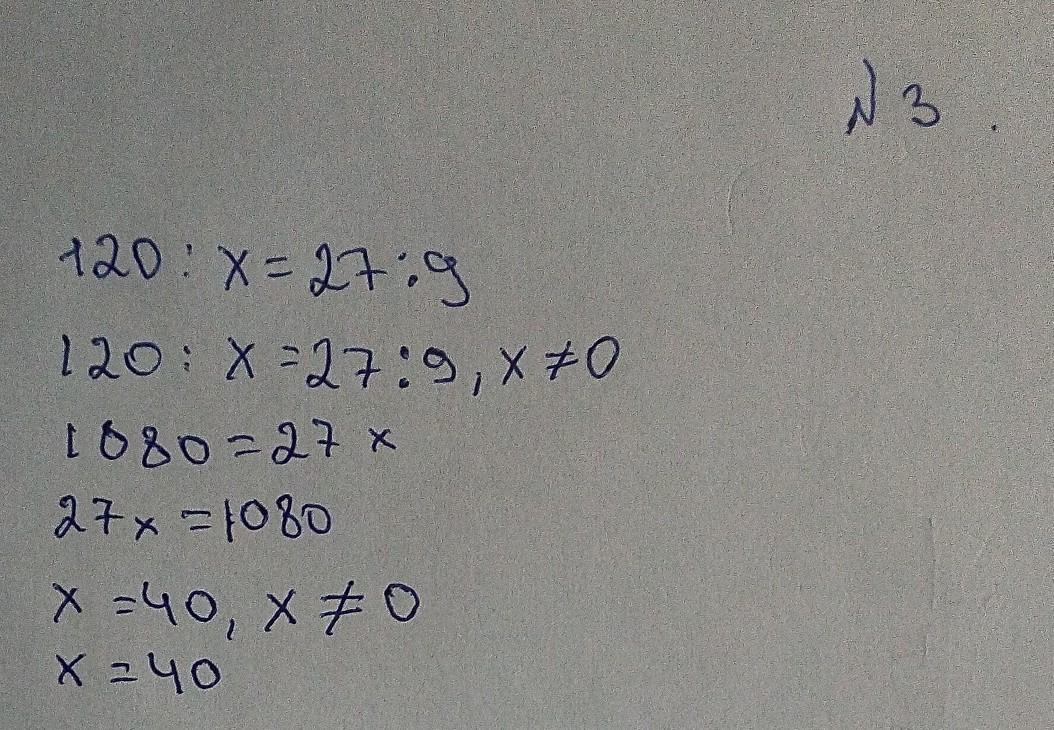 N 3 .
120 : x = 27 : 9
120 : x = 27 : 9 , x ≠ 0
1080 = 27 x
27 x = 1080
x = 40, x ≠ 0
x = 40